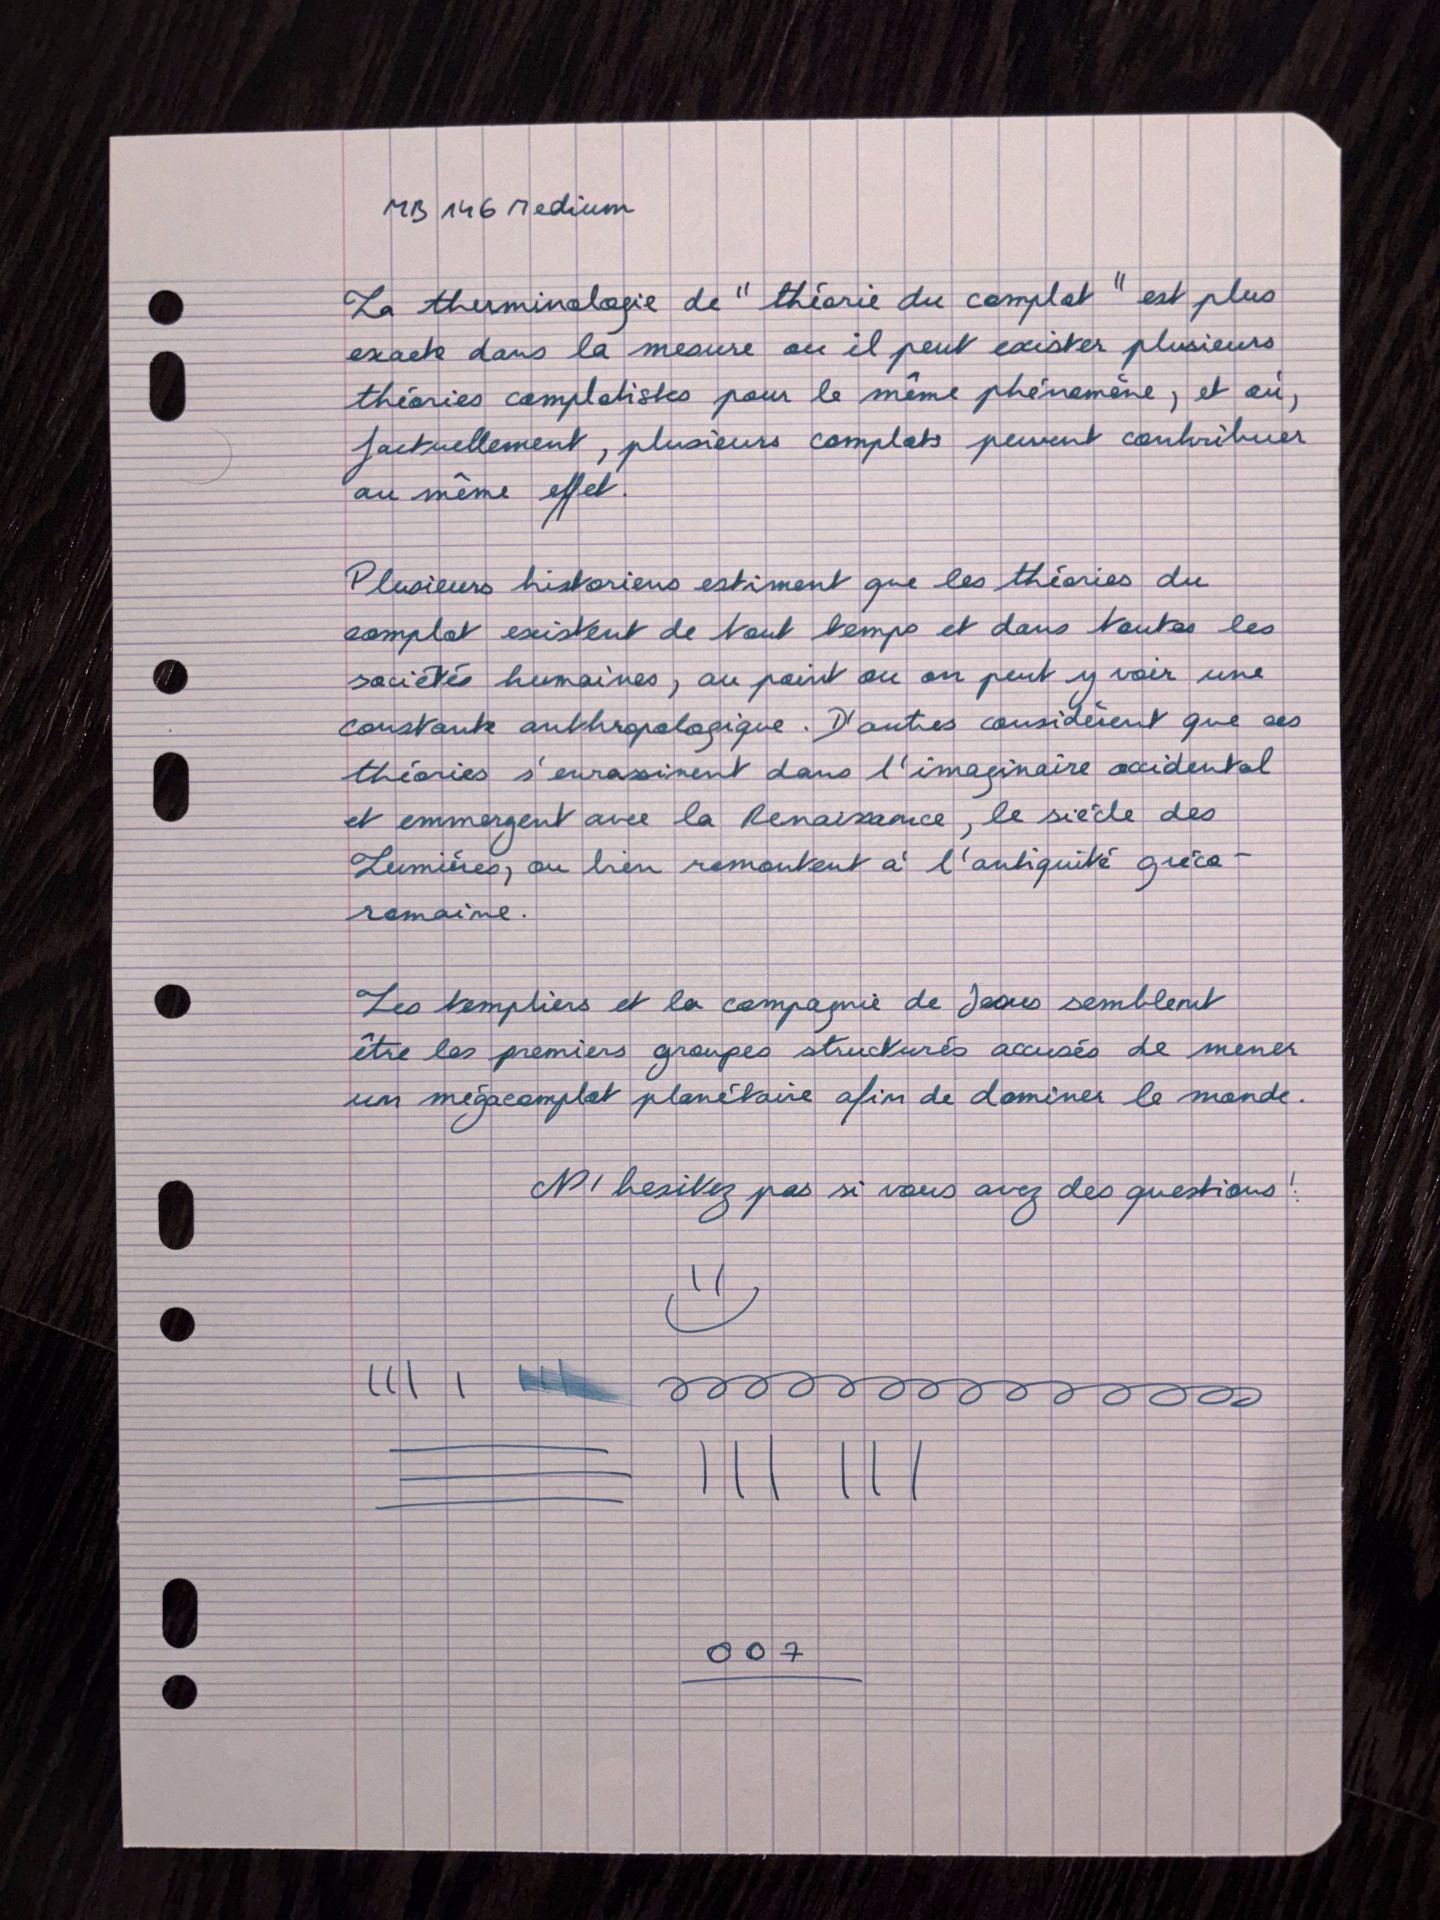 MB 146 Medium
La therminologie de " théorie du complot " est plus
exacte dans la mesure ou il peut exister plusieurs
théories complotistes pour le même phénomène, et où,
factuellement, plusieurs complots peuvent contribuer
au même effet.
Plusieurs historiens estiment que les théories du
complot existent de tout temps et dans toutes les
sociétés humaines, au point ou on peut y voir une
constante anthropologique. D'autres considèrent que ces
théories s'enrassinent dans l'imaginaire occidental
et emmergent avec la Renaissance, le siècle des
Lumières, ou bien remontent à l'antiquité gréco-
romaine.
Les templiers et la compagnie de Jesus semblent
être les premiers groupes structurés accusés de mener
un mégacomplot planétaire afin de dominer le monde.
N'hesitez pas si vous avez des questions !
007